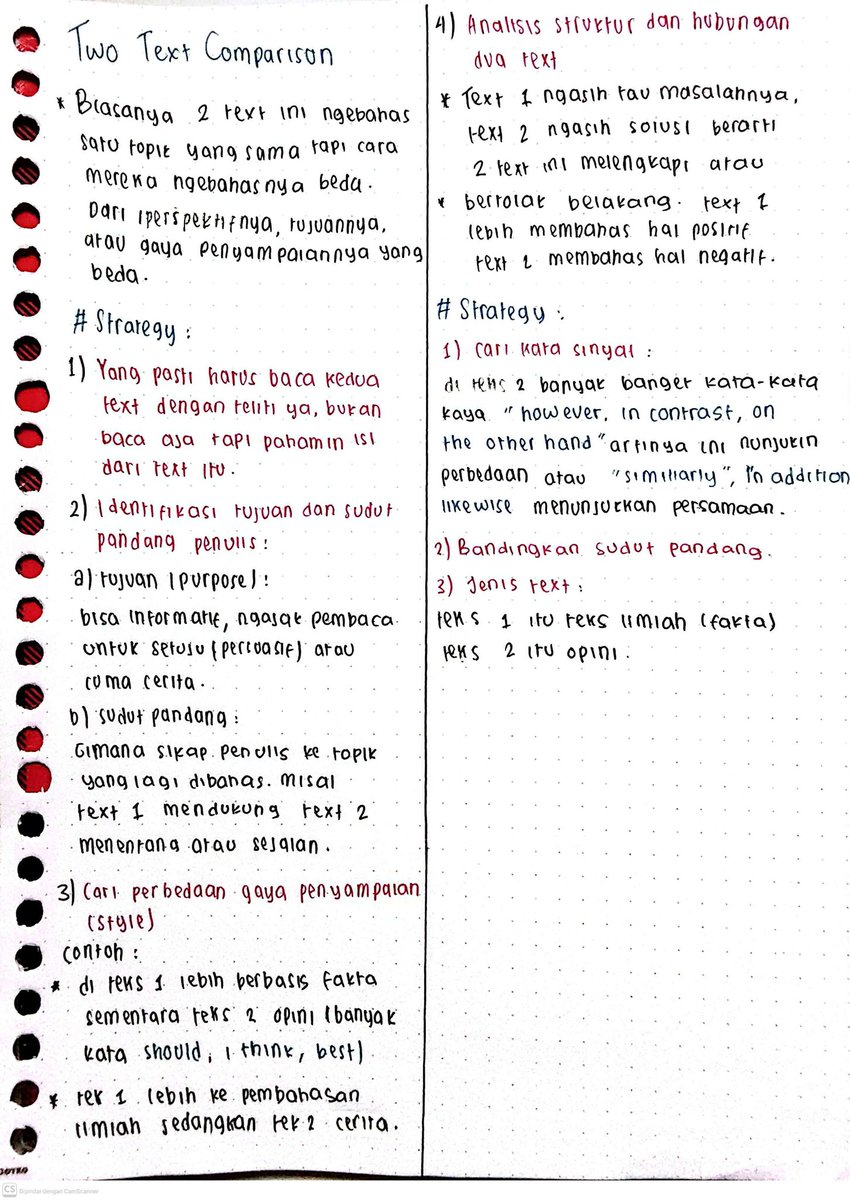 Two Text Comparison
* Biasanya 2 text ini ngebahas
satu topik yang sama tapi cara
mereka ngebahasnya beda.
Dari (perspektifnya, tujuannya,
atau gaya penyampaiannya yang
beda.
# Strategy :
1) Yang pasti harus baca kedua
text dengan teliti ya, bukan
baca aja tapi pahamin isi
dari text itu.
2) Identifikasi tujuan dan sudut
pandang penulis :
a) tujuan (purpose) :
bisa informatif, ngajak pembaca
untuk setuju (percuasif) atau
cuma cerita.
b) sudut pandang :
Gimana sikap penulis ke topik
yang lagi dibahas. misal
text 1 mendukung text 2
menentang atau sejalan.
3) Cari perbedaan gaya penyampaian
(style)
contoh :
* di teks 1 lebih berbasis fakta
sementara teks 2 opini (banyak
kata should, i think, best)
* tek 1 lebih ke pembahasan
ilmiah sedangkan tek 2 cerita.
4) Analisis struktur dan hubungan
dua text
* Text 1 ngasih tau masalahnya,
text 2 ngasih solusi berarti
2 text ini melengkapi atau
* bertolak belakang. text 1
lebih membahas hal positif
text 2 membahas hal negatif.
# Strategy :
1) Cari kata sinyal :
di teks 2 banyak banget kata-kata
kaya "however, in contrast, on
the other hand" artinya ini nunjukin
perbedaan atau "similiarly", in addition
likewise menunjukkan persamaan.
2) Bandingkan sudut pandang.
3) Jenis text :
teks 1 itu teks ilmiah (fakta)
teks 2 itu opini.
CS Dipindai dengan CamScanner